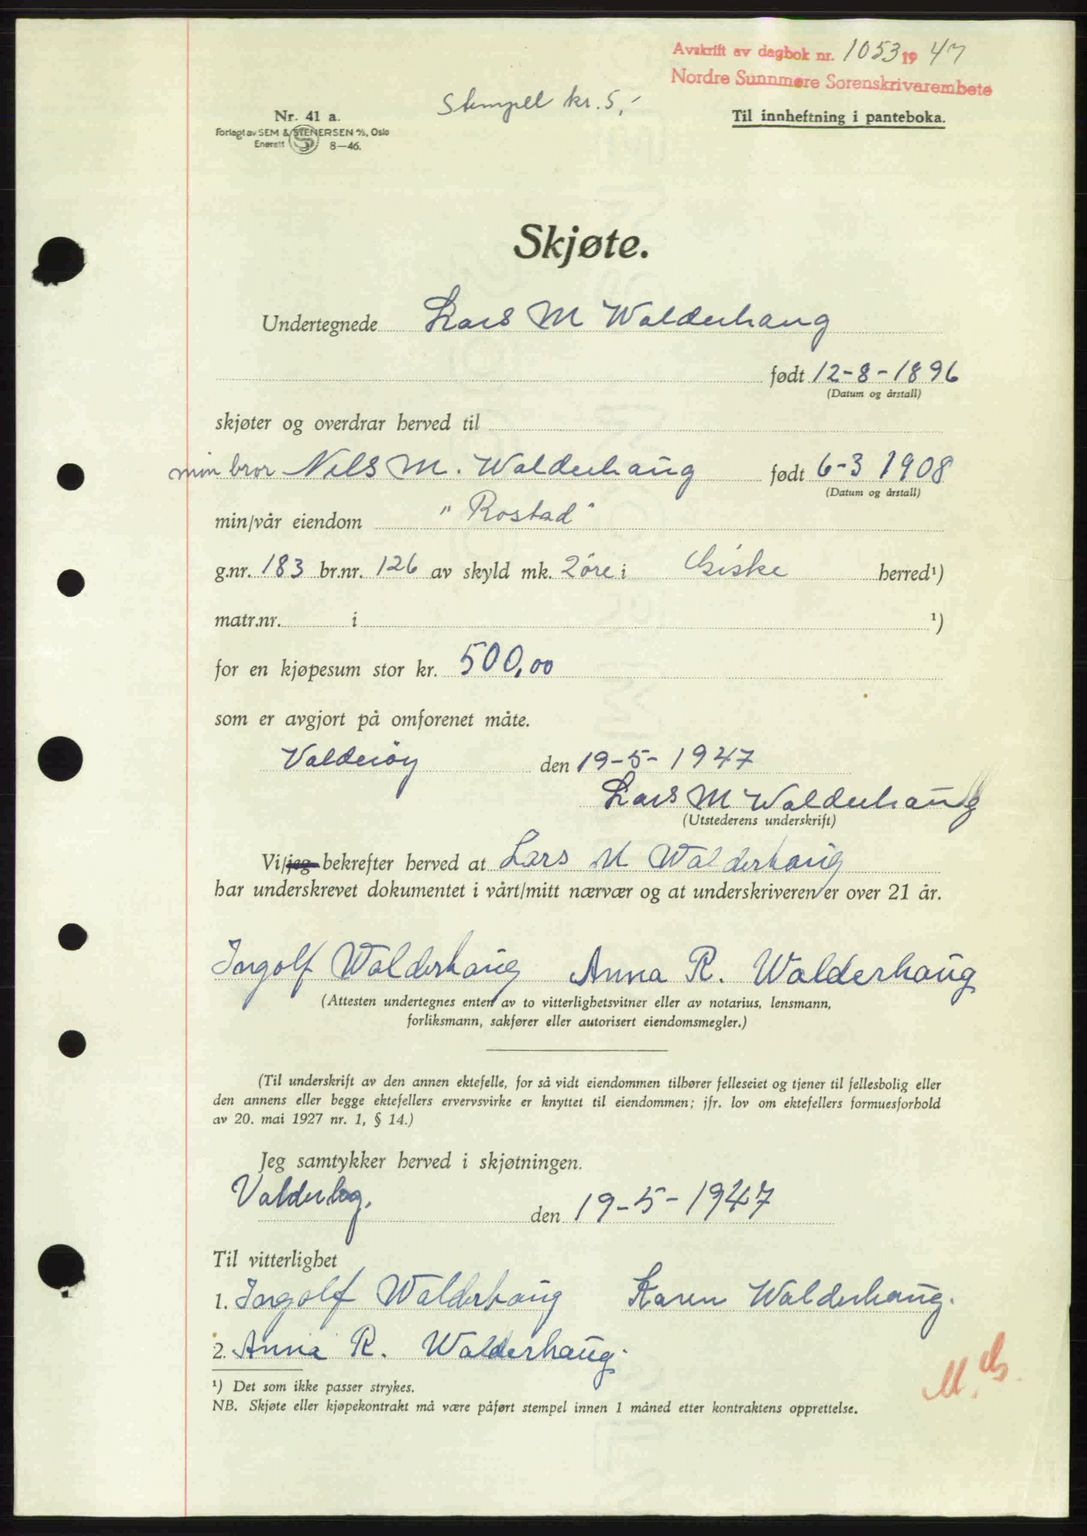 Avskrift av dagbok nr. 1053 1947
Nordre Sunnmøre Sorenskrivarembete
Stempel kr. 5,-
Nr. 41 a.
Forlagt av SEM & STENERSEN A/S, Oslo
Enerett 8-46.
Til innheftning i panteboka.
Skjøte.
Undertegnede Lars M Walderhaug
født 12-8-1896
(Datum og årstall)
skjøter og overdrar herved til
min bror Nils M. Walderhaug født 6-3 1908
(Datum og årstall)
min/vår eiendom "Rostad"
g.nr. 183 br.nr. 126 av skyld mk. 2 øre i Giske herred¹)
matr.nr. i ¹)
for en kjøpesum stor kr. 500,00
som er avgjort på omforenet måte.
Valderøy den 19-5-1947
Lars M Walderhaug
(Utstederens underskrift)
Vi/jeg bekrefter herved at Lars M Walderhaug
har underskrevet dokumentet i vårt/mitt nærvær og at underskriveren er over 21 år.
Ingolf Walderhaug Anna R. Walderhaug
(Attesten undertegnes enten av to vitterlighetsvitner eller av notarius, lensmann,
forliksmann, sakfører eller autorisert eiendomsmegler.)
(Til underskrift av den annen ektefelle, for så vidt eiendommen tilhører felleseiet og tjener til fellesbolig eller
den annens eller begge ektefellers ervervsvirke er knyttet til eiendommen; jfr. lov om ektefellers formuesforhold
av 20. mai 1927 nr. 1, § 14.)
Jeg samtykker herved i skjøtningen.
den 19-5-1947
Til vitterlighet
1. Ingolf Walderhaug Karen Walderhaug.
2. Anna R. Walderhaug.
¹) Det som ikke passer strykes.
NB. Skjøte eller kjøpekontrakt må være påført stempel innen 1 måned etter kontraktens opprettelse.